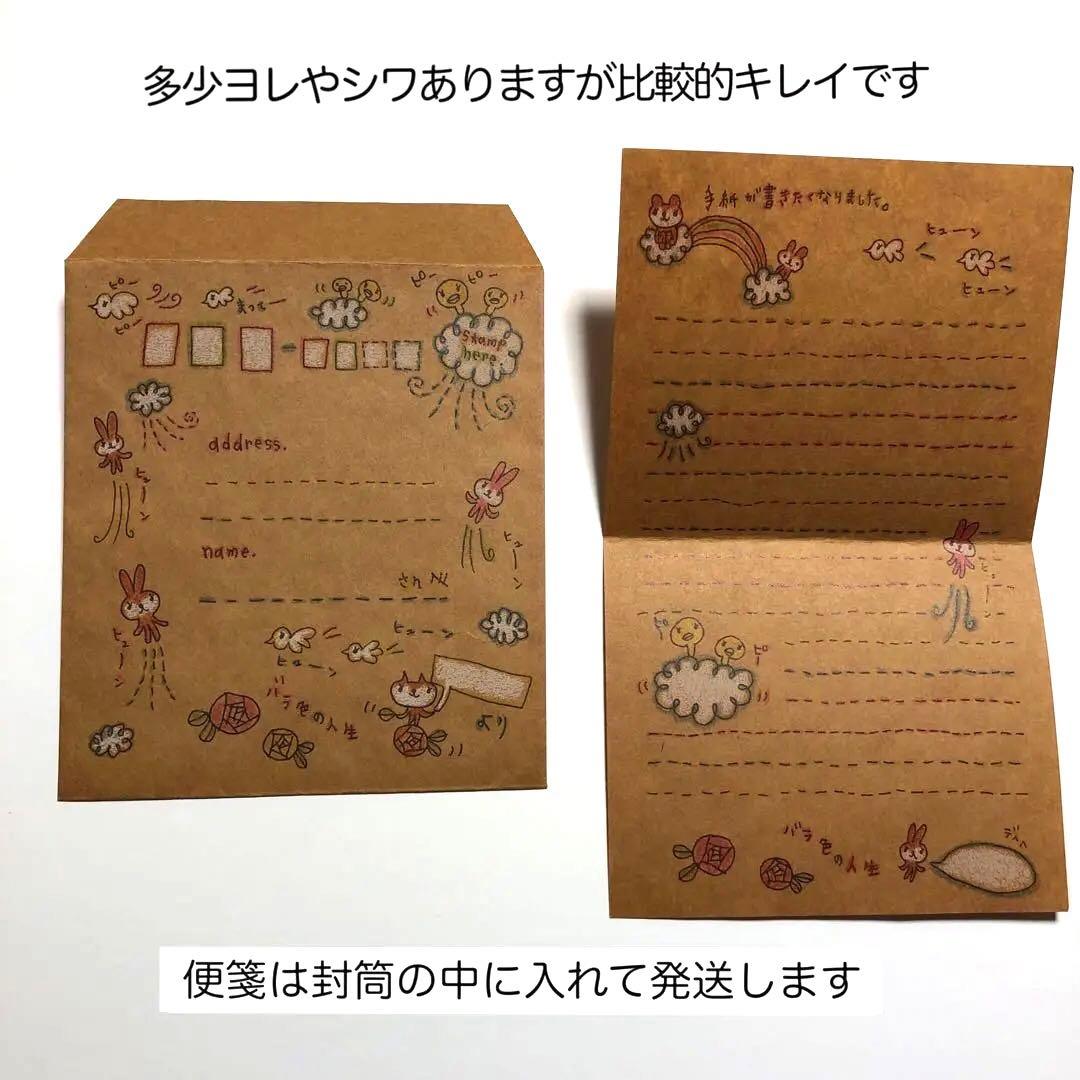 多少ヨレやシワありますが比較的キレイです
ピー
ピー
まってー
ピー
ピー
stamp
here
address.
ヒューン
ヒューン
name.
さん
ヒューン
ヒューン
ヒューン
バラ色の人生
より
手紙が書きたくなりました。
ヒューン
ヒューン
ヒューン
ピー
ピー
バラ色の人生
便箋は封筒の中に入れて発送します